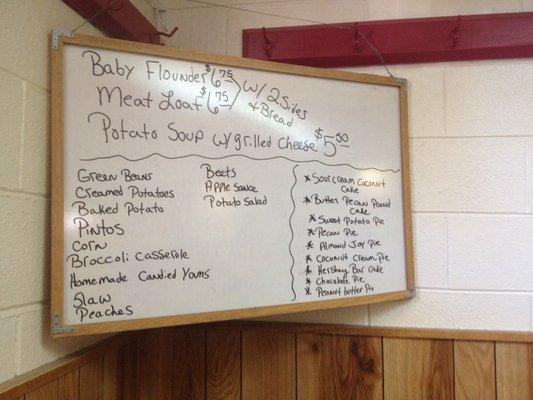 Baby Flounder $6 75
Meat Loaf $6 75
w/ 2 Sides
& Bread
Potato Soup w/grilled cheese $5 00
Green Beans
Creamed Potatoes
Baked Potato
Pintos
Corn
Broccoli Casserole
Homemade Candied Yams
Slaw
Peaches
Beets
Apple Sauce
Potato Salad
* Sour cream Coconut
Cake
* Butter Pecan Pound
Cake
* Sweet Potato Pie
* Pecan Pie
* Almond Joy Pie
* Coconut Cream Pie
* Hershey Bar Cake
* Chocolate Pie
* Peanut butter Pie